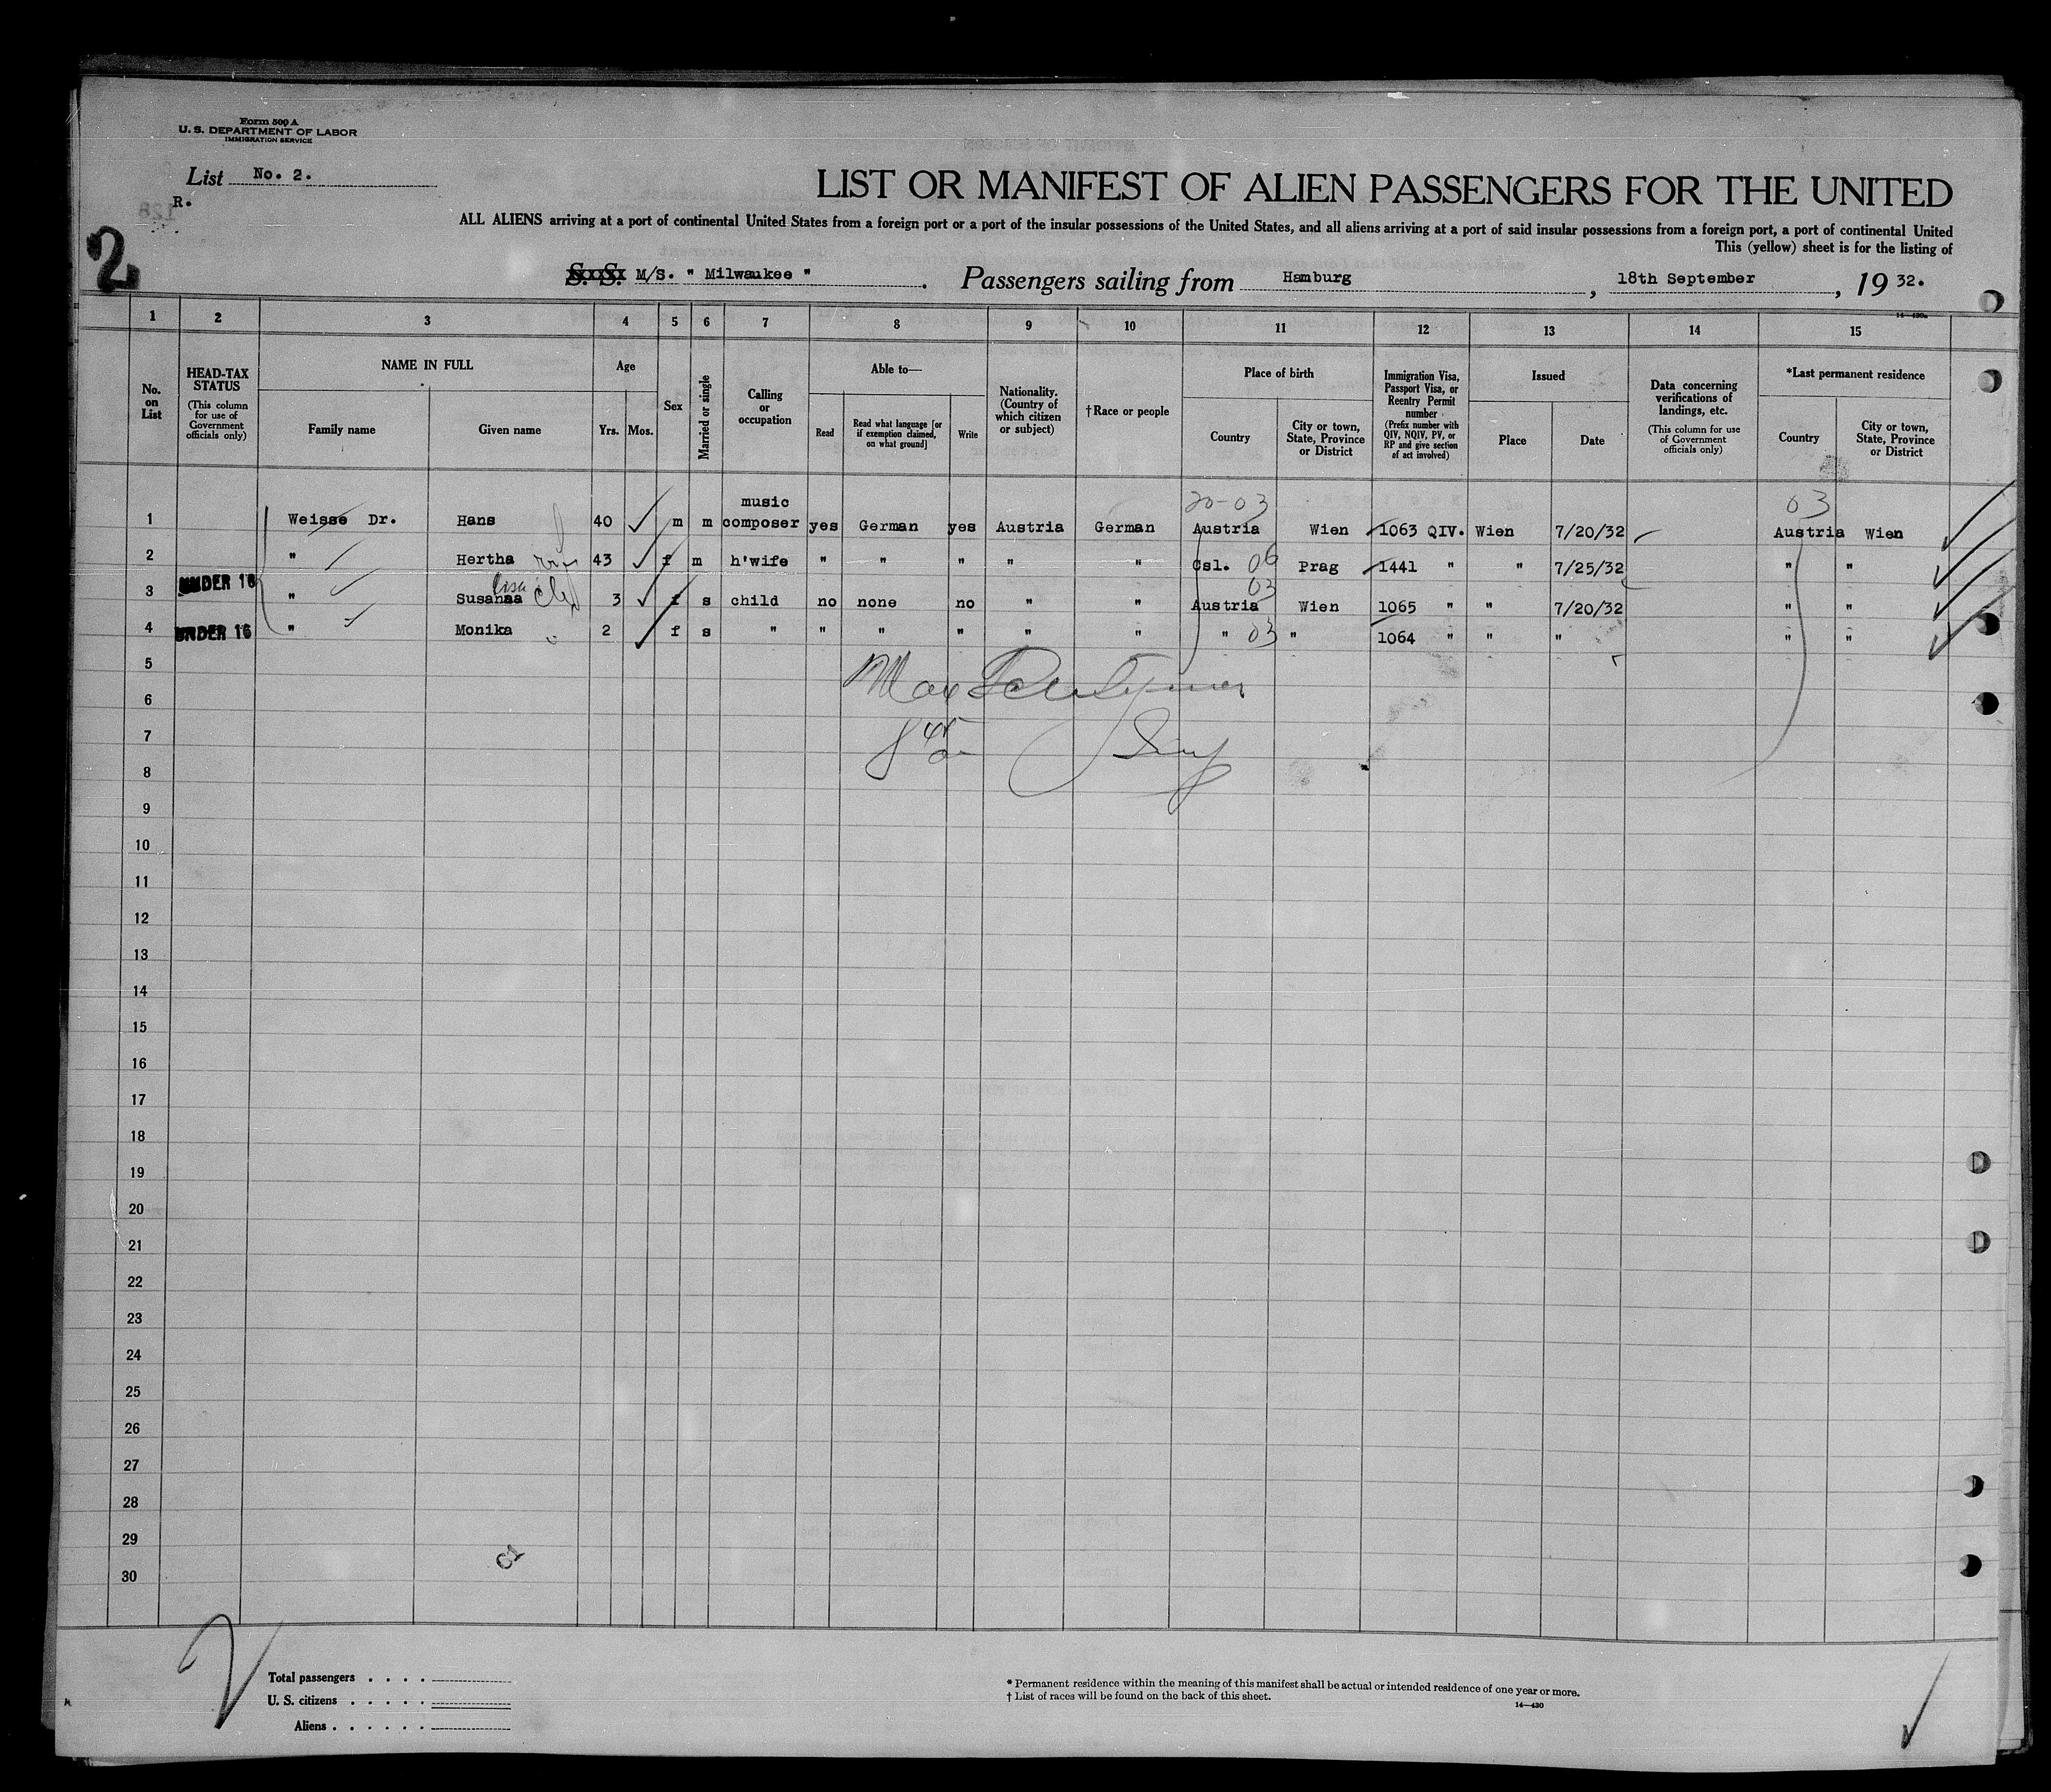 Form 500 A
U. S. DEPARTMENT OF LABOR
IMMIGRATION SERVICE
List No. 2.
R.
2
LIST OR MANIFEST OF ALIEN PASSENGERS FOR THE UNITED
ALL ALIENS arriving at a port of continental United States from a foreign port or a port of the insular possessions of the United States, and all aliens arriving at a port of said insular possessions from a foreign port, a port of continental United
This (yellow) sheet is for the listing of
S. S. M/S. " Milwaukee " . Passengers sailing from Hamburg , 18th September , 19 32.
14—430a
1 2 3 4 5 6 7 8 9 10 11 12 13 14 15
No. on List
HEAD-TAX STATUS (This column for use of Government officials only)
NAME IN FULL
Family name
Given name
Age
Yrs. Mos.
Sex
Married or single
Calling or occupation
Able to—
Read
Read what language [or if exemption claimed, on what ground]
Write
Nationality. (Country of which citizen or subject)
†Race or people
Place of birth
Country
City or town, State, Province or District
Immigration Visa, Passport Visa, or Reentry Permit number (Prefix number with QIV, NQIV, PV, or RP and give section of act involved)
Issued
Place
Date
Data concerning verifications of landings, etc. (This column for use of Government officials only)
*Last permanent residence
Country
City or town, State, Province or District
20-03 03
1 Weisse Dr. Hans 40 m m music composer yes German yes Austria German Austria Wien 1063 QIV. Wien 7/20/32 Austria Wien
2 " Hertha 43 f m h'wife " " " " " Csl. 06 Prag 1441 " " 7/25/32 " "
UNDER 16 3 " Susanna 3 f s child no none no " " Austria 03 Wien 1065 " " 7/20/32 " "
UNDER 16 4 " Monika 2 f s " " " " " " " 03 " 1064 " " " " "
5
6
7
8
9
10
11
12
13
14
15
16
17
18
19
20
21
22
23
24
25
26
27
28
29
30
Total passengers . . . .
U. S. citizens . . . . .
Aliens . . . . . .
* Permanent residence within the meaning of this manifest shall be actual or intended residence of one year or more.
† List of races will be found on the back of this sheet.
14—430